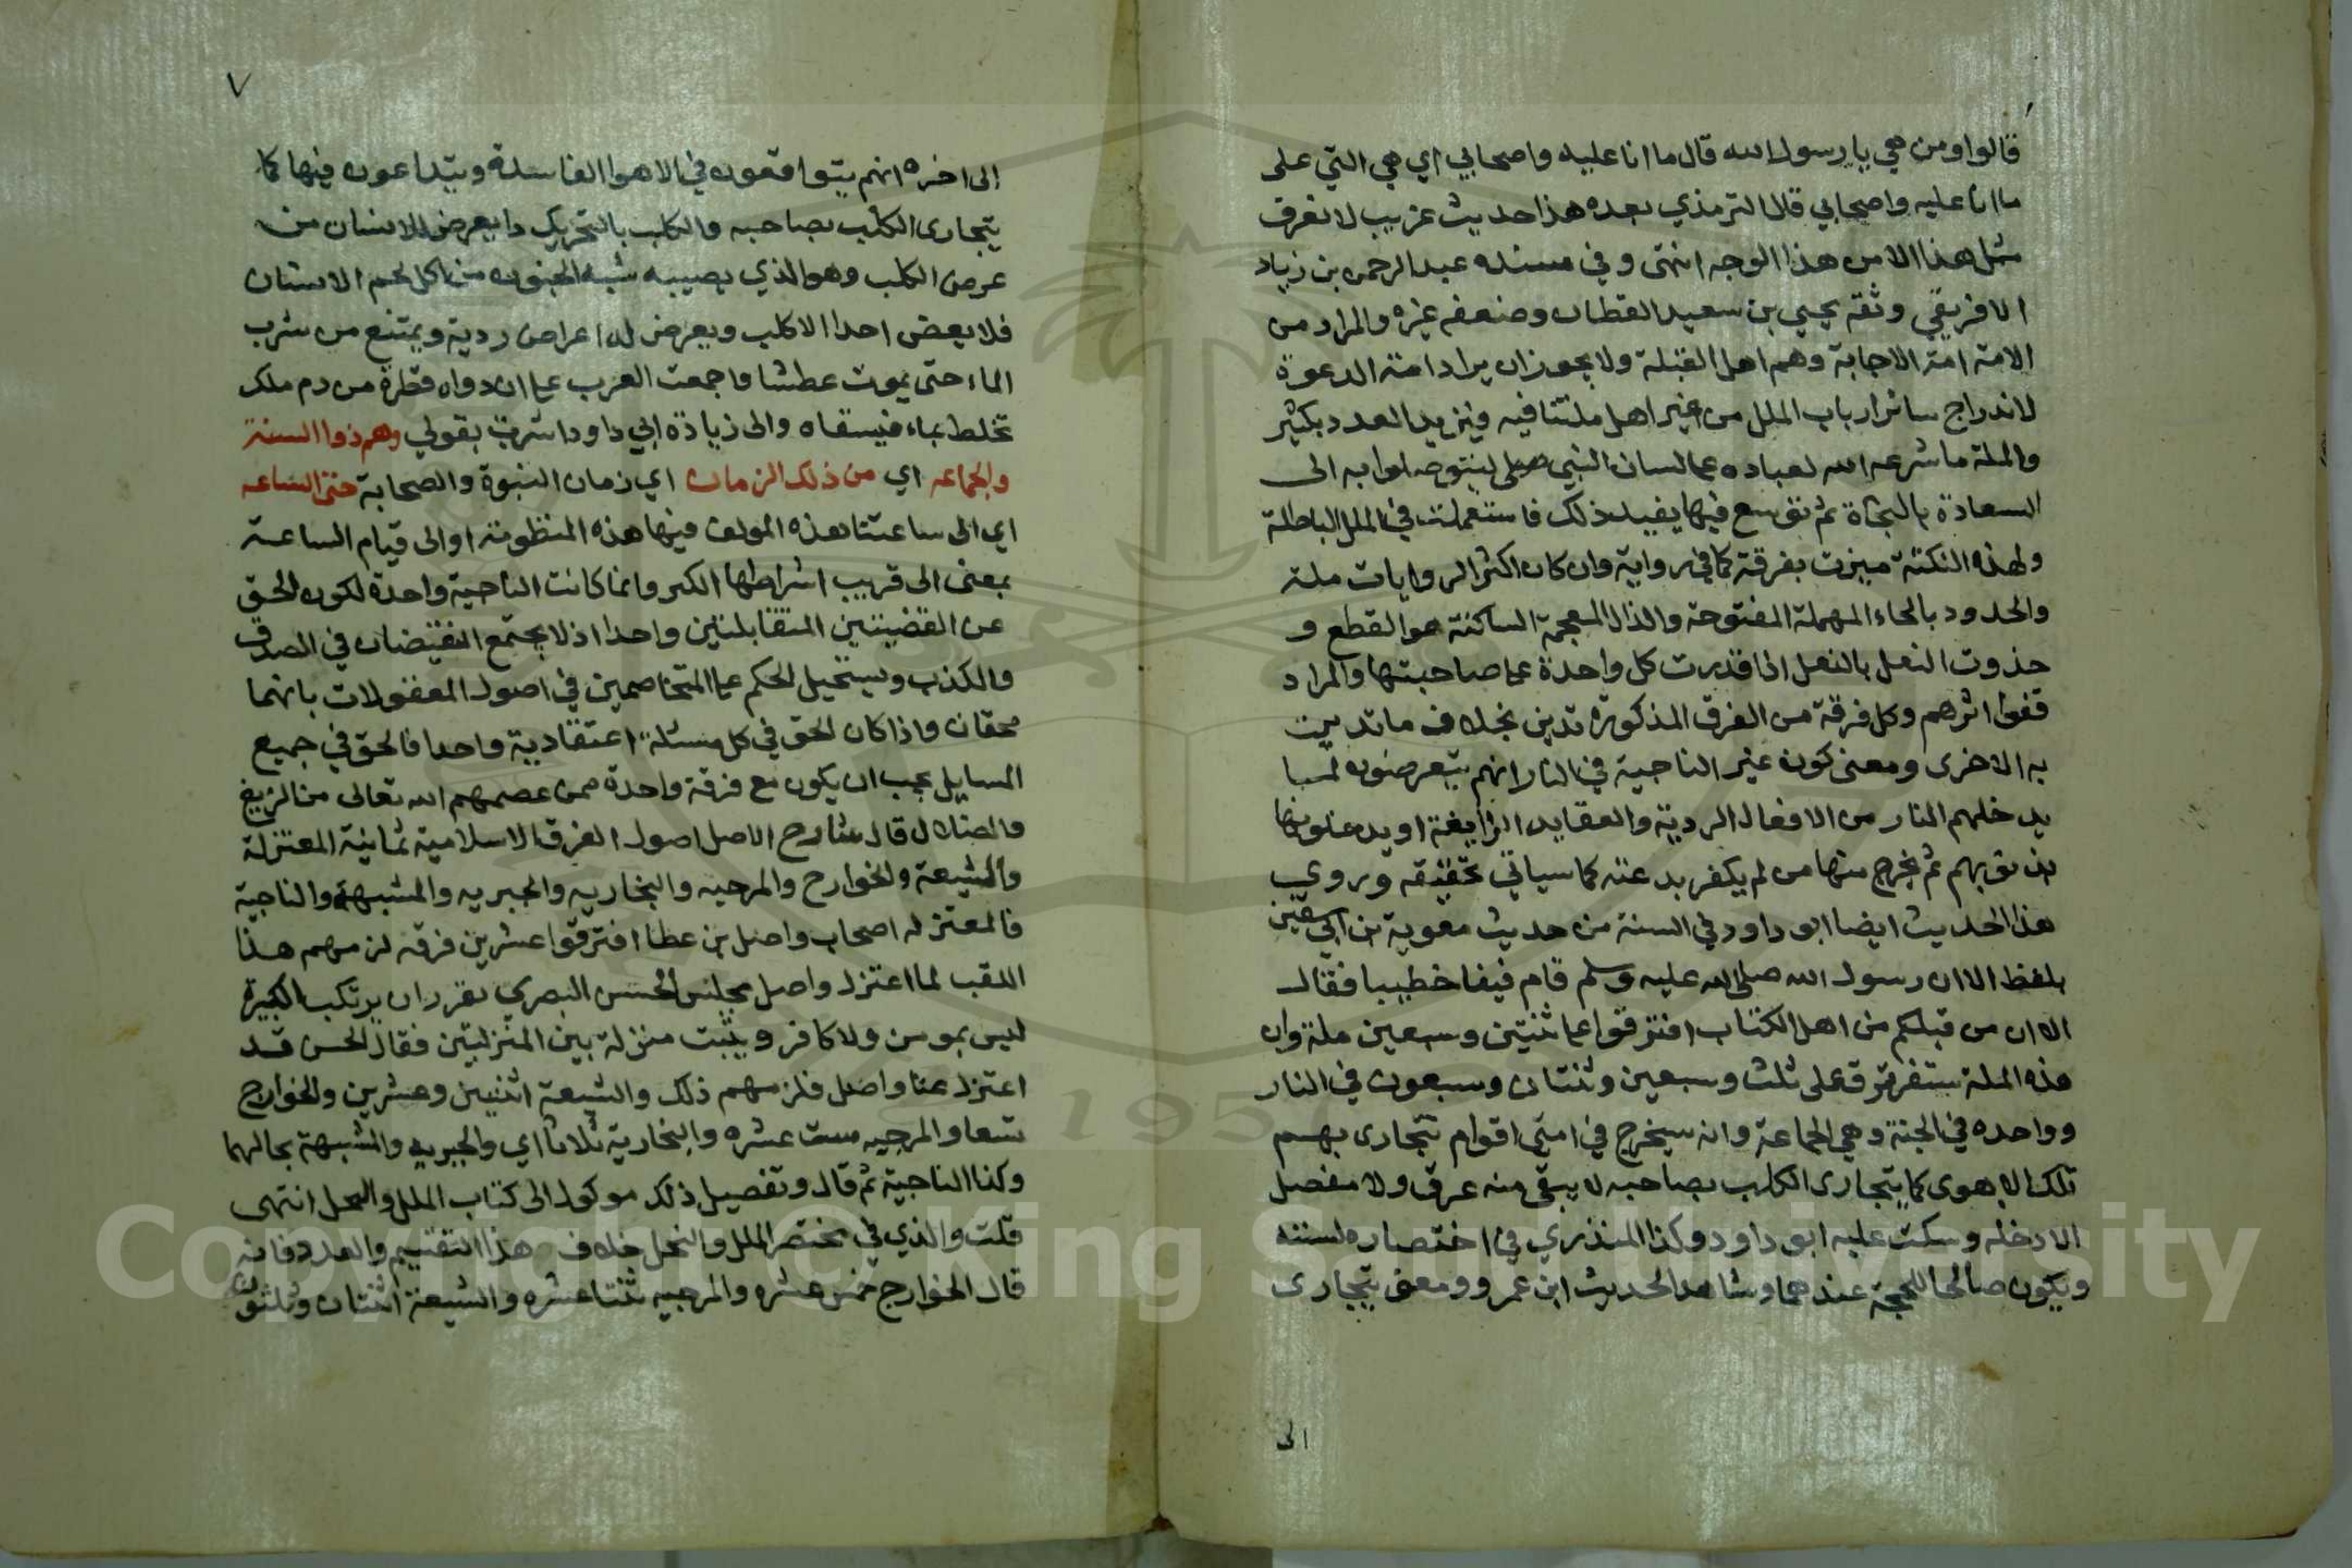 قالوا ومن هي يا رسول الله قال ما انا عليه واصحابي اي هي التي على
ما انا عليه واصحابي قال الترمذي بعده هذا حديث غريب لا نعرف
مثل هذا الا من هذا الوجه انتهى وفي مسنده عبد الرحمن بن زياد
الافريقي وثقه يحيى بن سعيد القطان وضعفه غيره والمراد من
الامة امة الاجابة وهم اهل القبلة ولا يجوز ان يراد امة الدعوة
لاندراج سائر ارباب الملل من غير اهل ملتنا فيه فيزيد العدد بكثير
والملة ما شرعه الله لعباده على لسان النبي صلى ليتوصلوا به الى
السعادة بالنجاة ثم توسع فيها يفيد ذلك فاستعملت في الملل الباطلة
ولهذه النكتة ميزت بفرقة كما في رواية وان كان اكثر الروايات ملة
والحدود بالحاء المهملة المفتوحة والذال المعجمة الساكنة هو القطع و
حذوت النعل بالنعل اذا قدرت كل واحدة على صاحبتها والمراد
قفوا اثرهم وكل فرقة من الفرق المذكورة تدين بخلاف ما تدينت
به الاخرى ومعنى كون غير الناجية في النار انهم يتعرضون لما
يدخلهم النار من الافعال الردية والعقايد الزايغة او يدخلونها
بذنوبهم ثم يخرج منها من لم يكفر ببدعته كما سياتي تحقيقه وروي
هذا الحديث ايضا ابو داود في السنة من حديث معوية بن ابي سفين
بلفظ الا ان رسول الله صلى الله عليه وسلم قام فينا خطيبا فقال
الا ان من قبلكم من اهل الكتاب افترقوا على ثنتين وسبعين ملة وان
هذه الملة ستفترق على ثلث وسبعين وثنتان وسبعون في النار
وواحده في الجنة وهي الجماعة وانه سيخرج في امتي اقوام تتجارى بهم
تلك الاهوى كما يتجارى الكلب بصاحبه لا يبقى منه عرق ولا مفصل
الا دخله وسكت عليه ابو داود وكذا المنذري في اختصاره لسننه
ويكون صالحا للحجة عندهما وشاهد الحديث ابن عمرو ومعنى يتجارى
الى
٧
الى اخره انهم يتواقعون في الاهوا الفاسدة ويتداعون فيها كما
يتجارى الكلب بصاحبه والكلب بالتحريك دا يعرض للانسان من
عرض الكلب وهو الذي يصيبه شبه الجنون من اكل لحم الانسان
فلا يعض احدا الا كلب ويعرض له اعراض ردية ويمتنع من شرب
الماء حتى يموت عطشا واجمعت العرب على ان دواه قطرة من دم ملك
تخلط بماء فيسقاه والى زيادة ابي داود اشرت بقولي وهم ذوا السنة
والجماعه اي من ذلك الزمان اي زمان النبوة والصحابة حتى الساعه
اي الى ساعتنا هذه المولف فيها هذه المنظومة او الى قيام الساعة
بمعنى الى قريب اشراطها الكبر وانما كانت الناجية واحدة لكون الحق
عن القضيتين المتقابلتين واحدا اذ لا يجتمع النقيضان في الصدق
والكذب ويستحيل الحكم على المتخاصمين في اصول المعقولات بانهما
محقان واذا كان الحق في كل مسئلة اعتقادية واحدا فالحق في جميع
المسايل يجب ان يكون مع فرقة واحدة ممن عصمهم الله تعالى من الزيغ
والضلال قال شارح الاصل اصول الفرق الاسلامية ثمانية المعتزلة
والشيعة والخوارج والمرجيه والبخاريه والجبريه والمشبهة والناجية
فالمعتزله اصحاب واصل بن عطا افترقوا عشرين فرقه لزمهم هذا
اللقب لما اعتزل واصل مجلس الحسن البصري يقرر ان مرتكب الكبيرة
ليس بمومن ولا كافر ويثبت منزلة بين المنزلتين فقال الحسن قد
اعتزل عنا واصل فلزمهم ذلك والشيعة اثنين وعشرين والخوارج
سبعا والمرجيه ست عشره والبخارية ثلاثا اي والجبريه والمشبهة بحالهما
وكذا الناجية ثم قال وتفصيل ذلك موكول الى كتاب الملل والنحل انتهى
قلت والذي في مختصر الملل والنحل خلاف هذا التقسيم والعدد فانه
قال الخوارج خمس عشره والمرجيه ثنتا عشره والشيعة اثنتان وثلثون
Copyright © King Saud University
1957